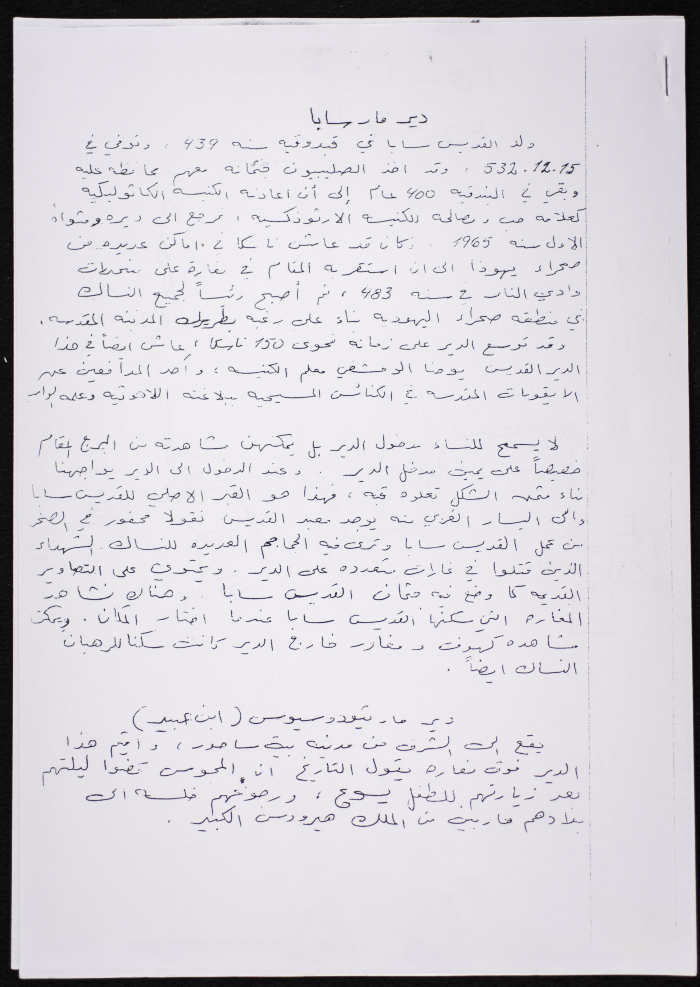 دير مار سابا
ولد القديس سابا في قبدوقيه سنه 439 ، وتوفي في
532.12.15 ، وقد اخذ الصليبيون جثمانه معهم محافظة عليه
وبقي في البندقيه 400 عام إلى أن اعادته الكنيسه الكاثوليكيه
كعلامه حب ومصالحه للكنيسه الارثوذكسيه ، فرجع الى ديره ومثواه
الاول سنه 1965 . وكان قد عاش ناسكا في اماكن عديده من
صحراء يهوذا الى ان استقر به المقام في مغارة على منحدرات
وادي النار في سنه 483 ، ثم أصبح رئيساً لجميع النساك
في منطقه صحراء اليهوديه بناء على رغبه بطريرك المدينه المقدسه .
وقد توسع الدير على زمانه فحوى 150 ناسكا ، عاش ايضاً في هذا
الدير القديس يوحنا الدمشقي معلم الكنيسه ، وأحد المدافعين عن
الايقونات المقدسه في الكنائس المسيحيه ببلاغته اللاهوتيه وعلمه
لا يسمح للنساء بدخول الدير بل يمكنهن مشاهدته من البرج المقام
خصيصاً على يمين مدخل الدير . وعند الدخول الى الدير يواجهنا
بناء مثمن الشكل تعلوه قبه ، فهذا هو القبر الاصلي للقديس سابا
والى اليسار الغربي منه يوجد معبد القديس نقولا محفور في الصخر
من عمل القديس سابا وترى فيه الجماجم العديده للنساك الشهداء
الذين قتلوا في غارات متعدده على الدير . ويحتوي على التصاوير
القديمه كما وضع فيه جثمان القديس سابا . وهناك نشاهد
المغاره التي سكنها القديس سابا عندما اختار المكان . ويمكن
مشاهده كهوف و مغاور خارج الدير كانت سكنا للرهبان
النساك ايضاً .
دير مار تيودوسيوس (ابن عبيد)
يقع الى الشرق من مدينه بيت ساحور ، وأقيم هذا
الدير فوق مغاره يقول التاريخ ان المجوس قضوا ليلتهم
بعد زيارتهم للطفل يسوع ، ورجوعهم خلسه الى
بلادهم هاربين من الملك هيرودس الكبير .